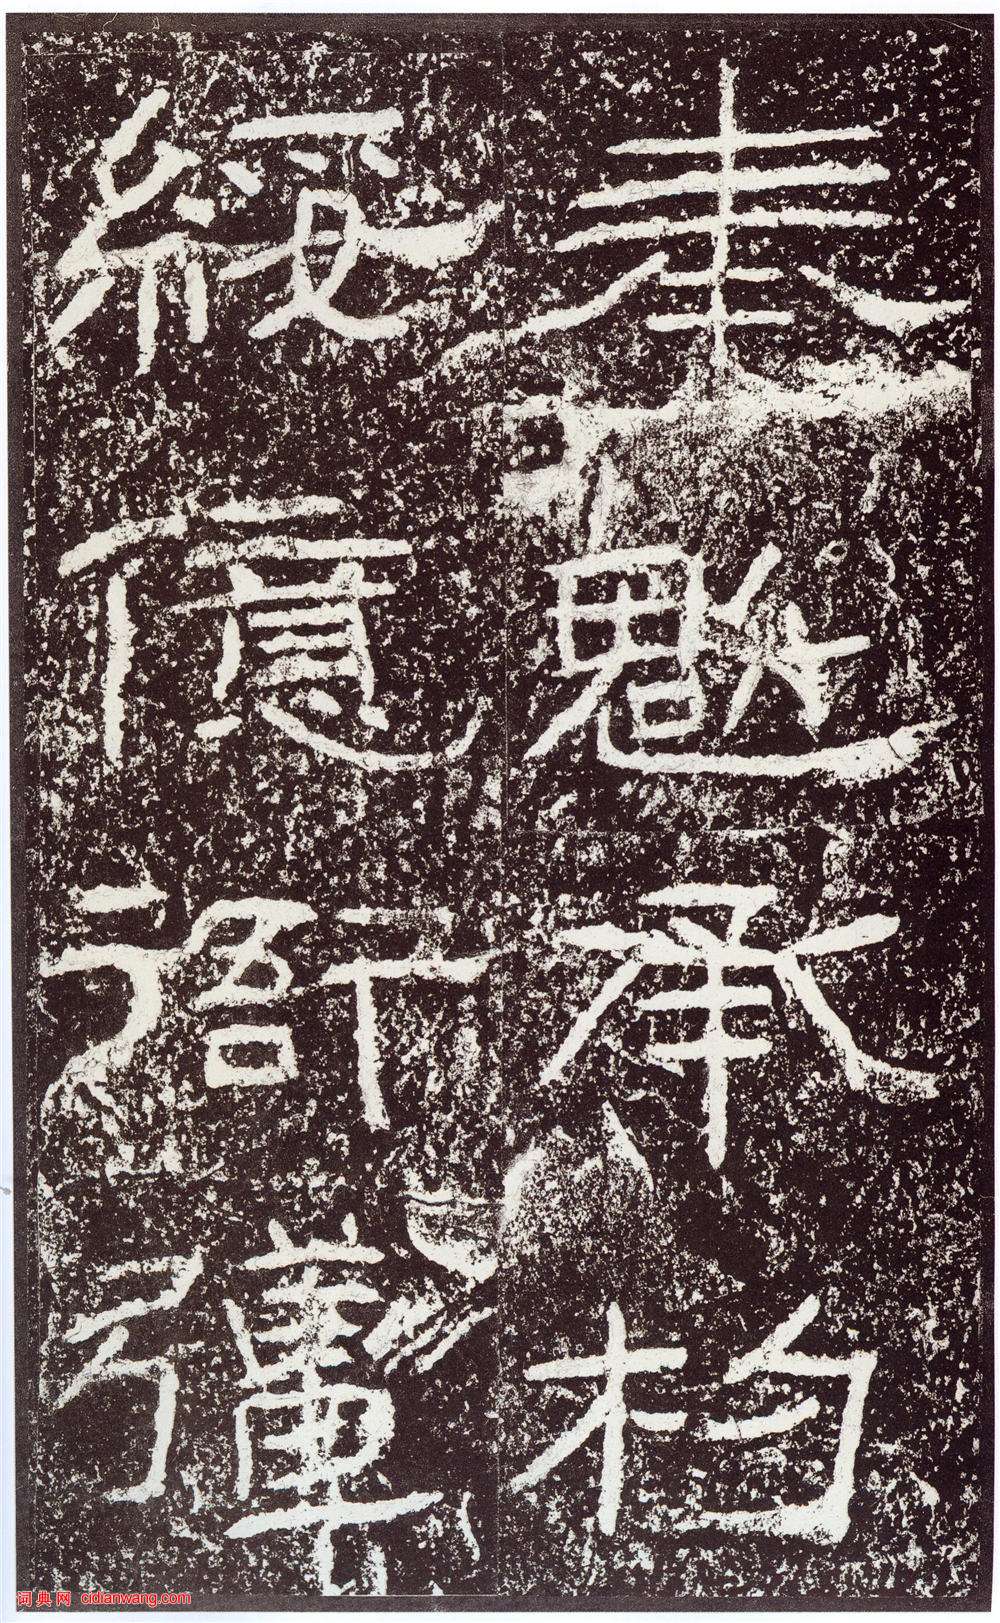 奉魁承杓
綏億衙彊
词典网 cidianwang.com